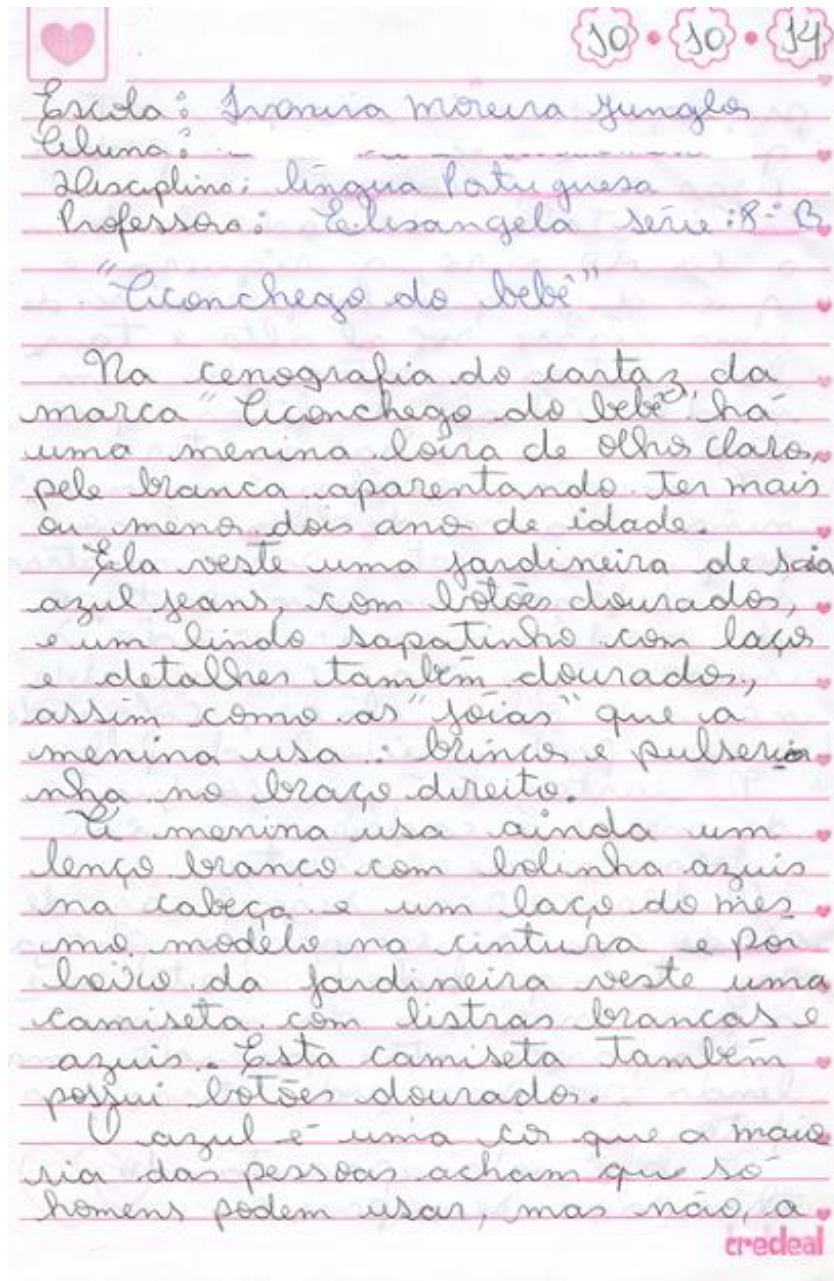 10 • 10 • 14
Escola: Ivanira Moreira Junglos
Aluna:
Disciplina: língua Portuguesa
Professora: Elisangela série: 8ª B
"Aconchego do bebê"
Na cenografia do cartaz da
marca "Aconchego do bebê", há
uma menina loira de olhos claros,
pele branca aparentando ter mais
ou menos dois anos de idade.
Ela veste uma jardineira de saia
azul jeans, com botões dourados,
e um lindo sapatinho com laços
e detalhes também dourados,
assim como as "joias" que a
menina usa: brincos e pulseri
nha no braço direito.
A menina usa ainda um
lenço branco com bolinha azuis
na cabeça e um laço do mes
mo modelo na cintura e por
baixo da jardineira veste uma
camiseta com listras brancas e
azuis. Esta camiseta também
possui botões dourados.
O azul é uma cor que a maio
ria das pessoas acham que só
homens podem usar, mas não, a
credeal